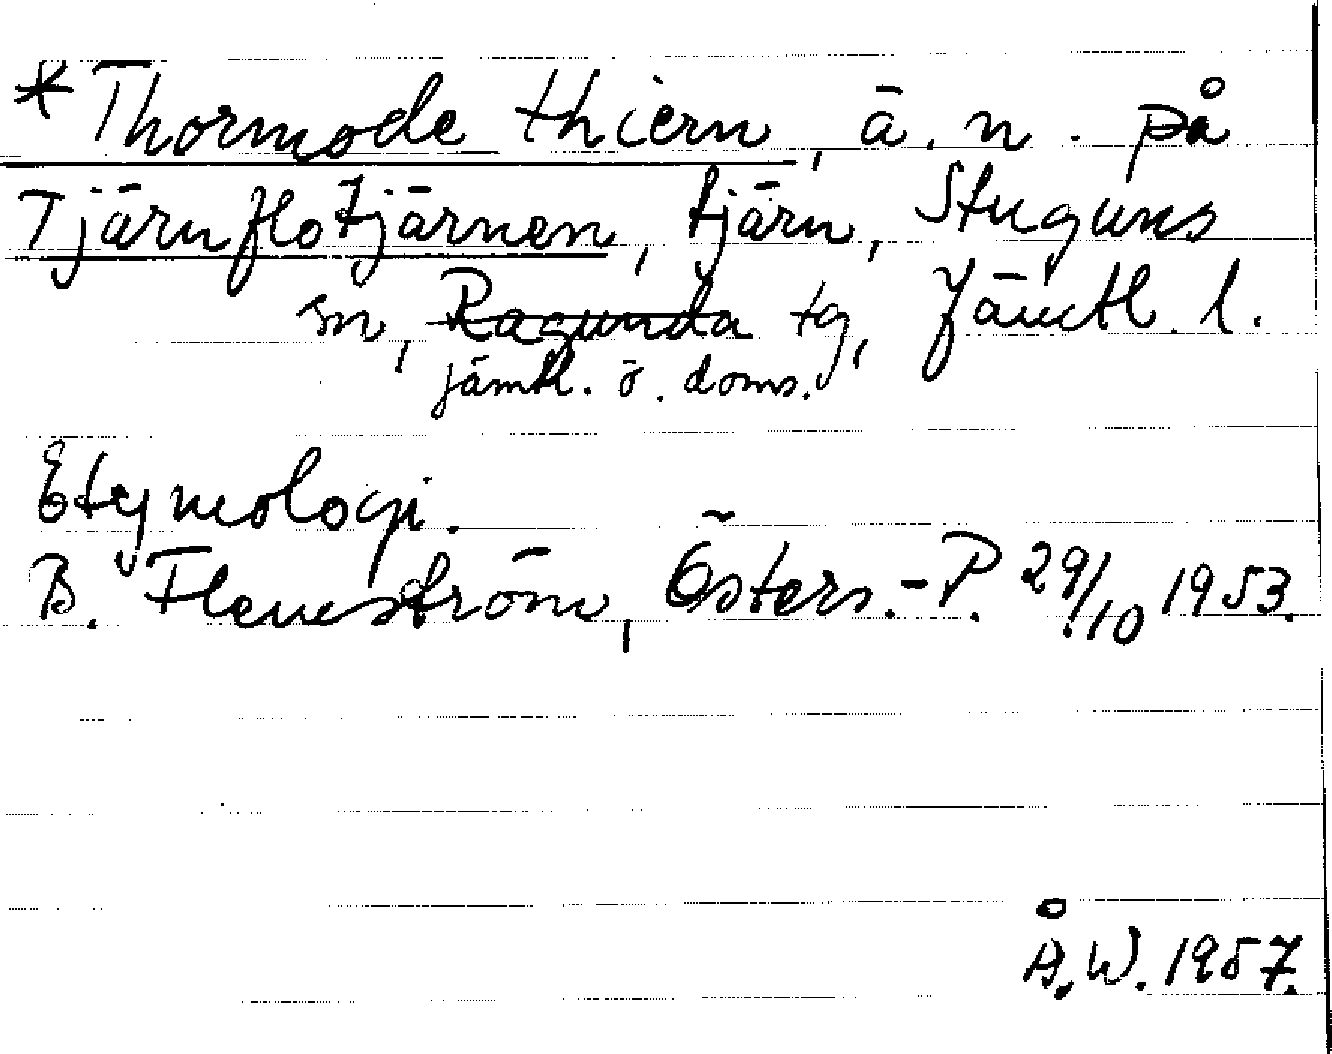 *Thormode thiern, ä. n. på
Tjärnflotjärnen, tjärn, Stuguns
sn, Ragunda tg, Jämtl. l.
jämtl. ö. doms.
Etymologi.
B. Flemström, Östers.-P. 29/10 1953.
Å. W. 1957.